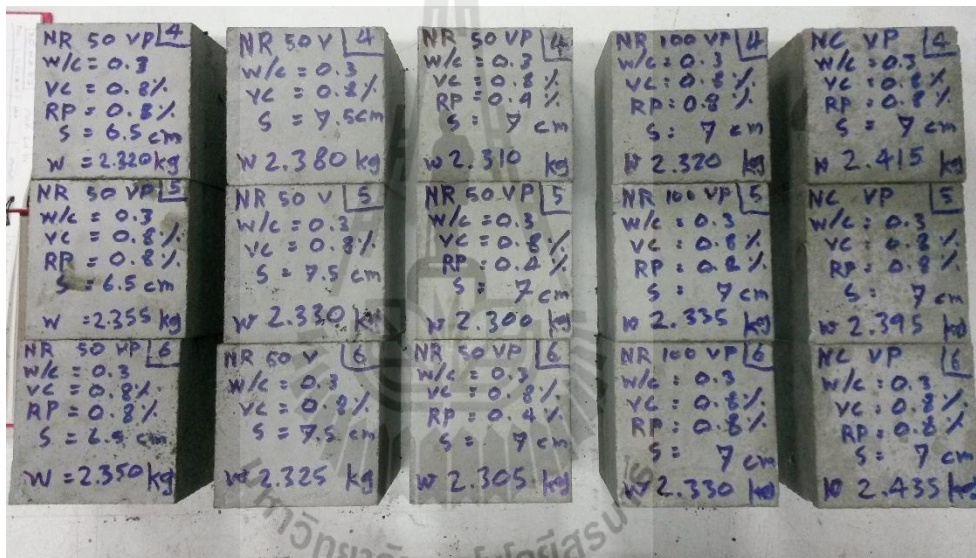 NR 50 VP 4
W/C = 0.3
VC = 0.8%
RP = 0.8%
S = 6.5 cm
W = 2.320 kg
NR 50 VP 5
W/C = 0.3
VC = 0.8%
RP = 0.8%
S = 6.5 cm
W = 2.355 kg
NR 50 VP 6
W/C = 0.3
VC = 0.8%
RP = 0.8%
S = 6.5 cm
W = 2.350 kg
NR 50 V 4
W/C = 0.3
VC = 0.8%
S = 7.5 cm
W 2.380 kg
NR 50 V 5
W/C = 0.3
VC = 0.8%
S = 7.5 cm
W 2.330 kg
NR 50 V 6
W/C = 0.3
VC = 0.8%
S = 7.5 cm
W 2.325 kg
NR 50 VP 4
W/C = 0.3
VC = 0.8%
RP = 0.4%
S = 7 cm
W 2.310 kg
NR 50 VP 5
W/C = 0.3
VC = 0.8%
RP = 0.4%
S = 7 cm
W 2.300 kg
NR 50 VP 6
W/C = 0.3
VC = 0.8%
RP = 0.4%
S = 7 cm
W 2.305 kg
NR 100 VP 4
W/C = 0.3
VC = 0.8%
RP = 0.8%
S = 7 cm
W 2.320 kg
NR 100 VP 5
W/C = 0.3
VC = 0.8%
RP = 0.8%
S = 7 cm
W 2.335 kg
NR 100 VP 6
W/C = 0.3
VC = 0.8%
RP = 0.8%
S = 7 cm
W 2.330 kg
NC VP 4
W/C = 0.3
VC = 0.8%
RP = 0.8%
S = 7 cm
W 2.415 kg
NC VP 5
W/C = 0.3
VC = 0.8%
RP = 0.8%
S = 7 cm
W 2.395 kg
NC VP 6
W/C = 0.3
VC = 0.8%
RP = 0.8%
S = 7 cm
W 2.435 kg